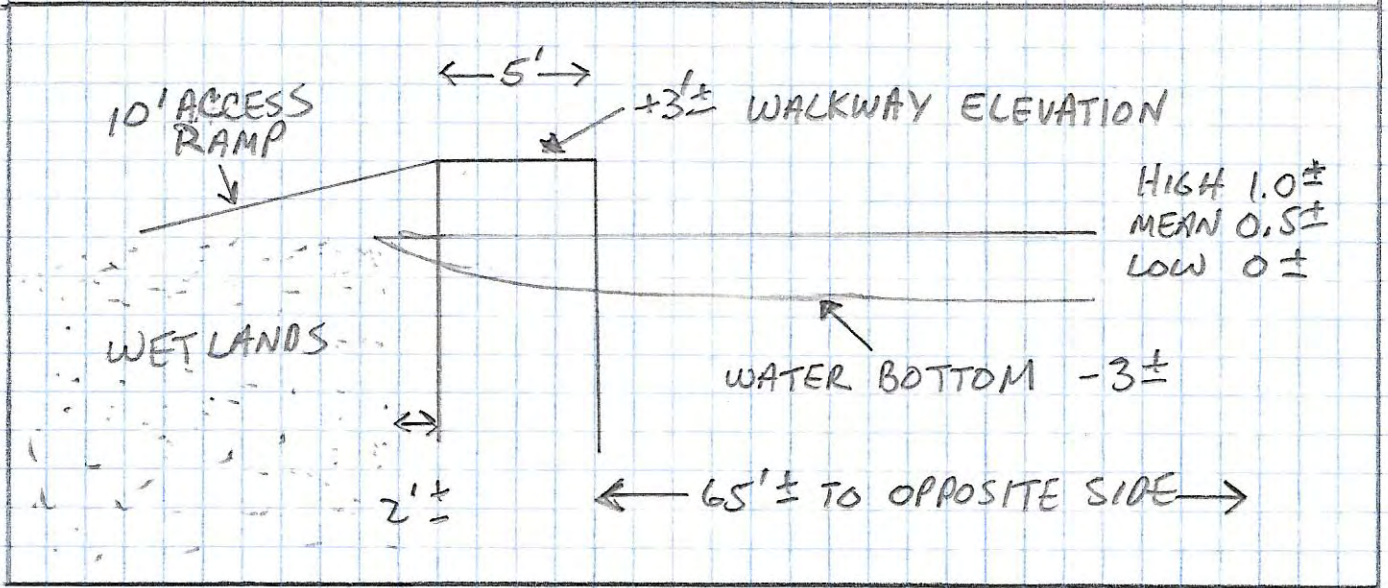 5'
10' ACCESS
RAMP
+3'± WALKWAY ELEVATION
HIGH 1.0±
MEAN 0.5±
LOW 0±
WETLANDS
WATER BOTTOM -3±
2'±
65'± TO OPPOSITE SIDE